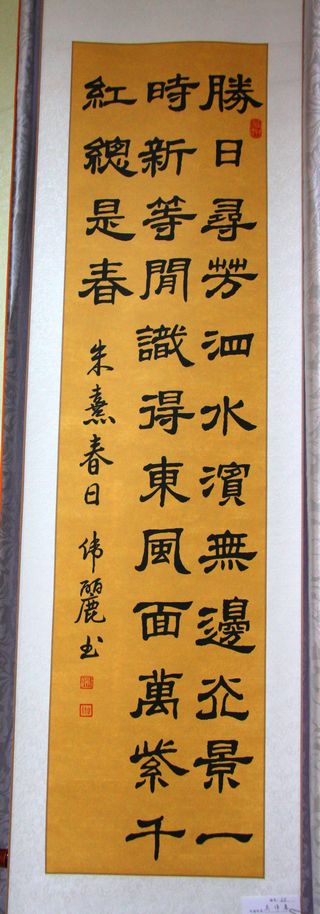 勝日尋芳泗水濱無邊光景一
時新等閒識得東風面萬紫千
紅總是春
朱熹春日 伟麗书